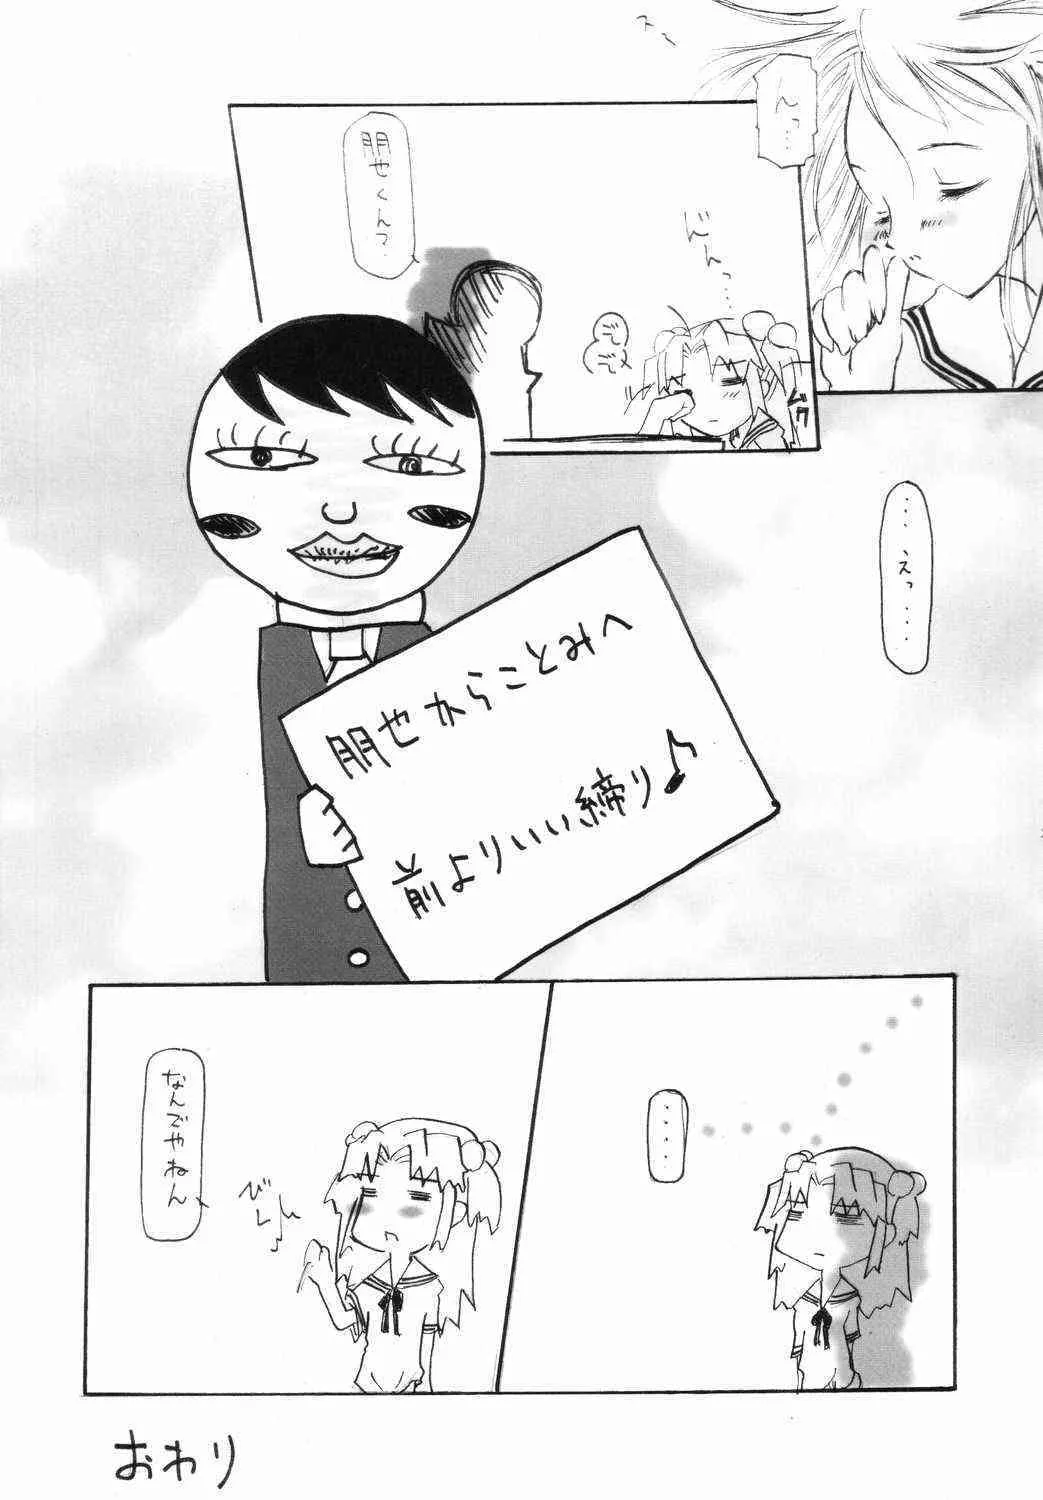 スー
んっ…
じんっ……
ムク
朋也くん?
……えっ……
朋也からことみへ
前よりいい締り♪
……
なんでやねん
びしっ
おわり